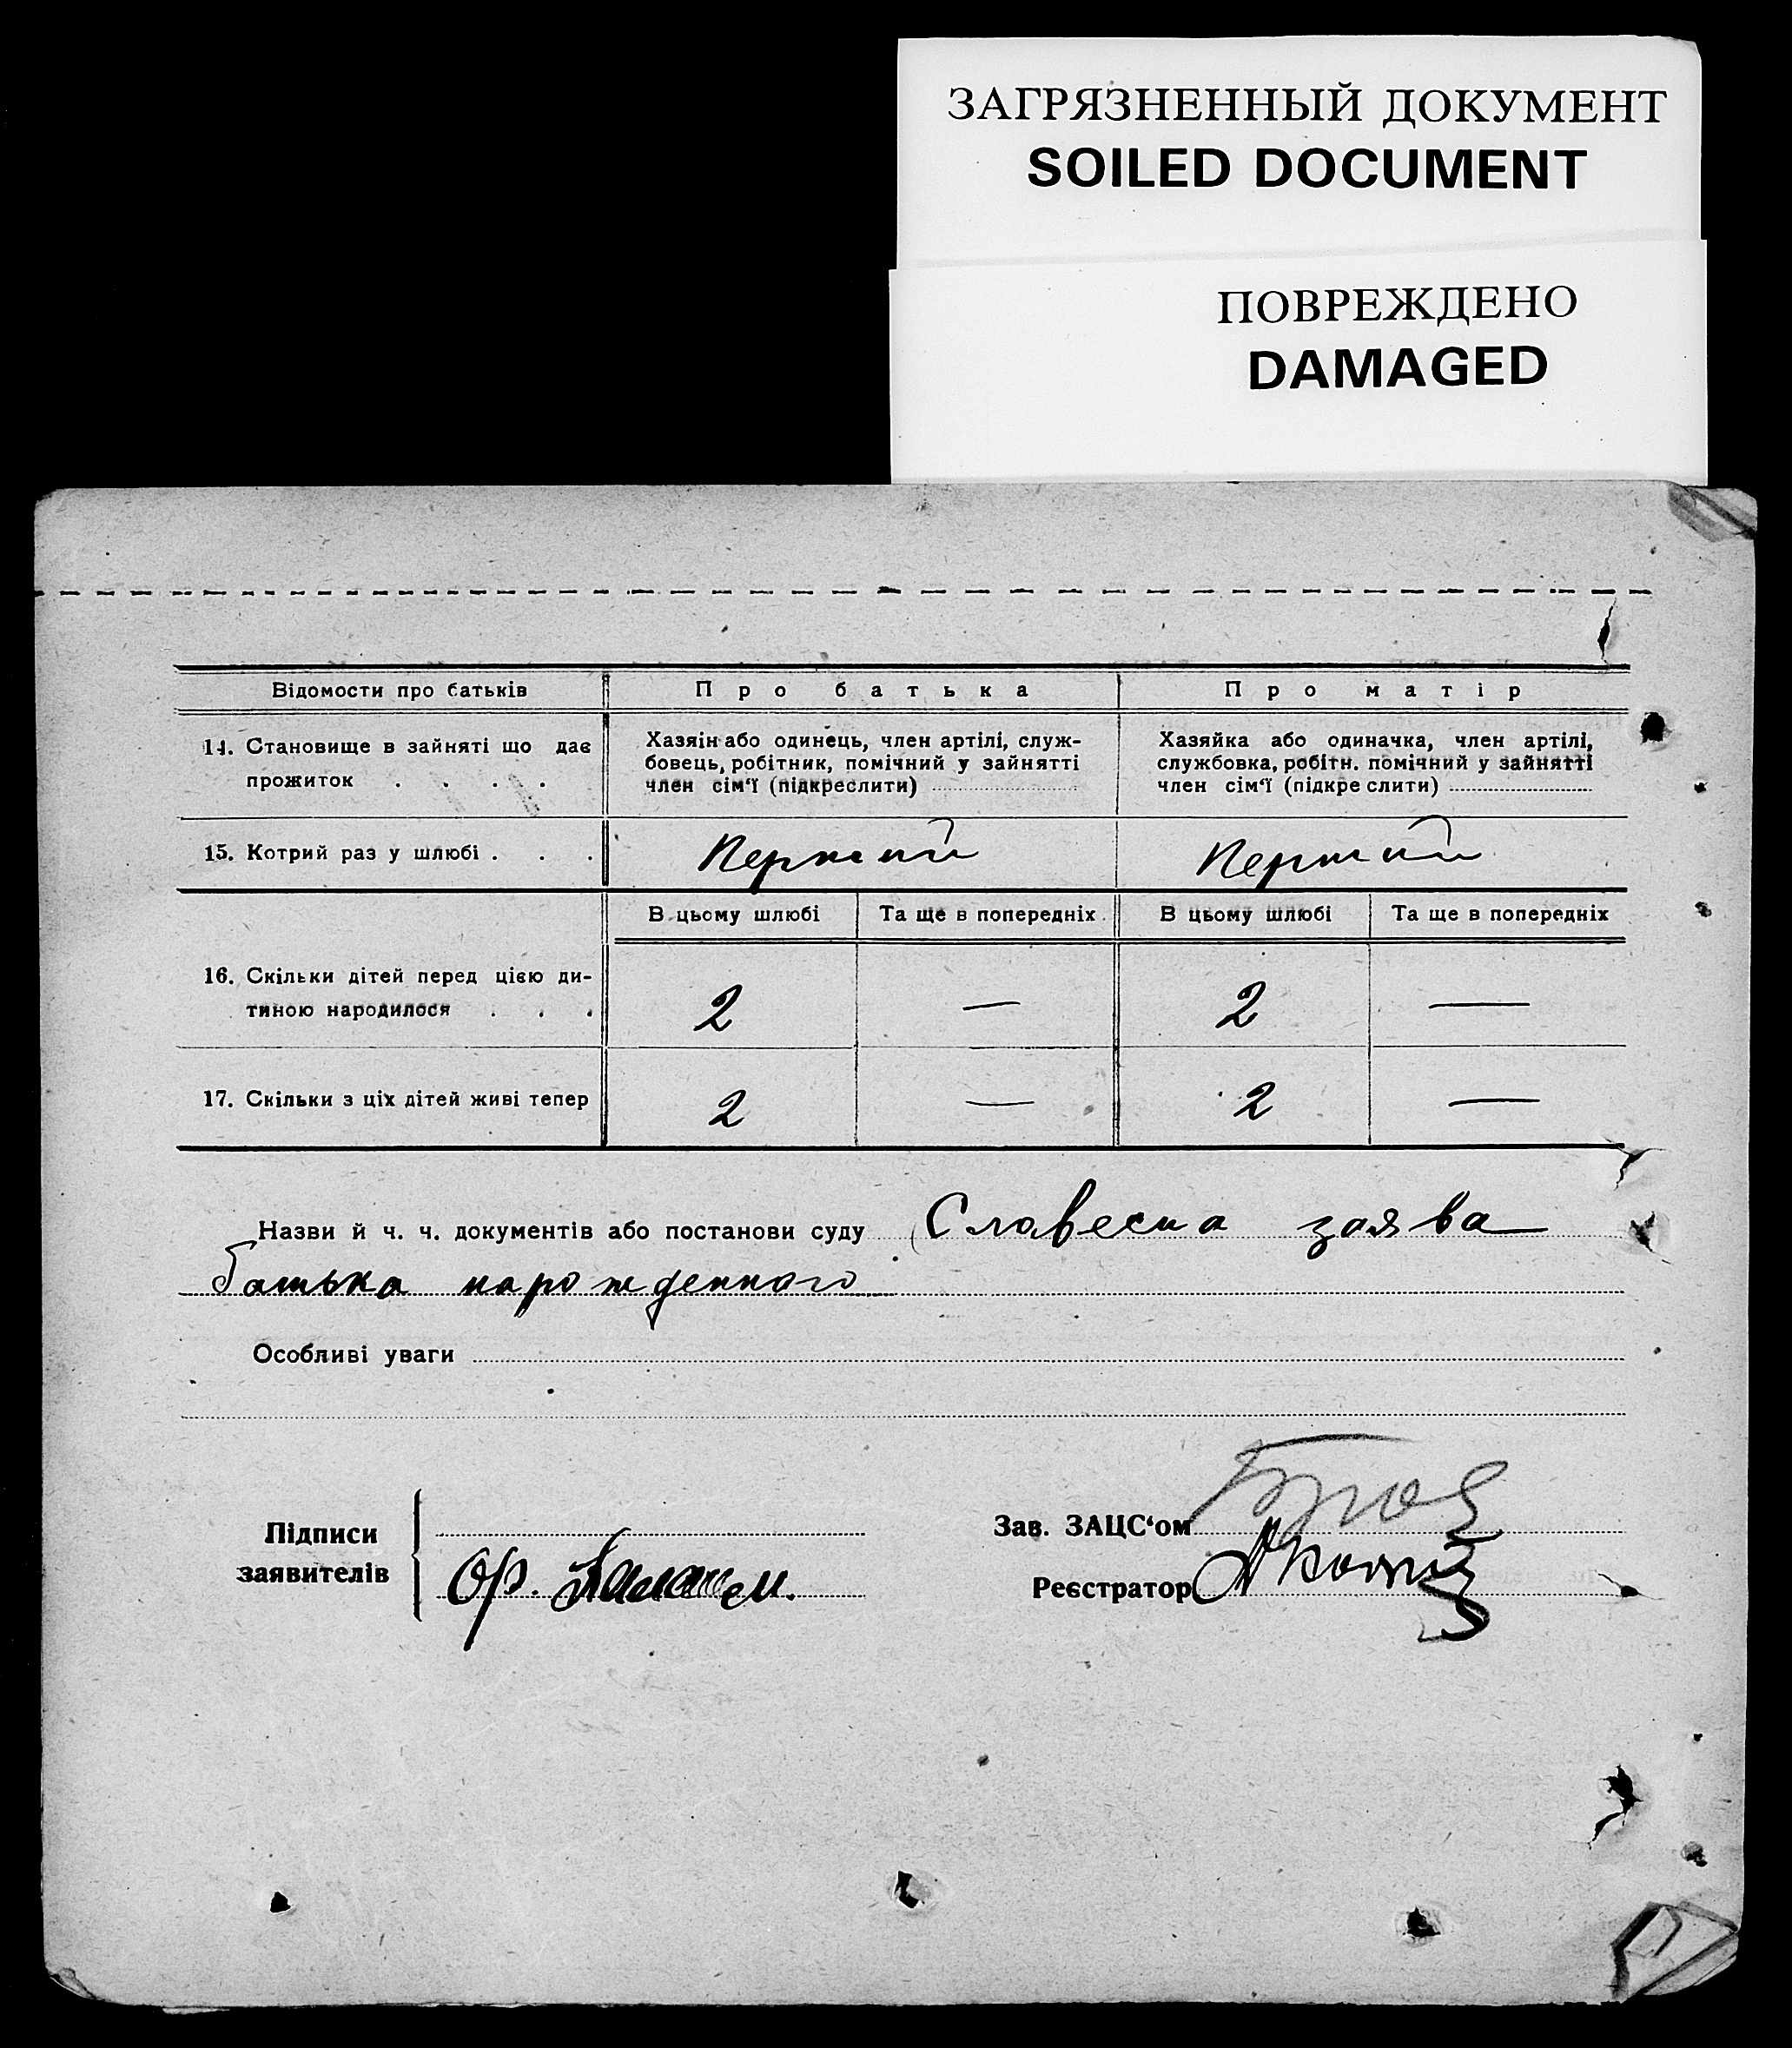 ЗАГРЯЗНЕННЫЙ ДОКУМЕНТ
SOILED DOCUMENT
ПОВРЕЖДЕНО
DAMAGED
Відомости про батьків
Про батька
Про матір
14. Становище в зайняті що дає
прожиток . . . .
Хазяін або одинець, член артілі, служ-
бовець, робітник, помічний у зайнятті
член сім'ї (підкреслити)
Хазяйка або одиначка, член артілі,
службовка, робітн. помічний у зайнятті
член сім'ї (підкреслити)
15. Котрий раз у шлюбі . . .
Перший
Перший
В цьому шлюбі
Та ще в попередніх
В цьому шлюбі
Та ще в попередніх
16. Скільки дітей перед цією ди-
тиною народилося . . .
2 — 2 —
17. Скільки з ціх дітей живі тепер
2 — 2 —
Назви й ч. ч. документів або постанови суду Славесна заява
батька нарожденного
Особливі уваги
Підписи
заявителів
Зав. ЗАЦС'ом
Реєстратор